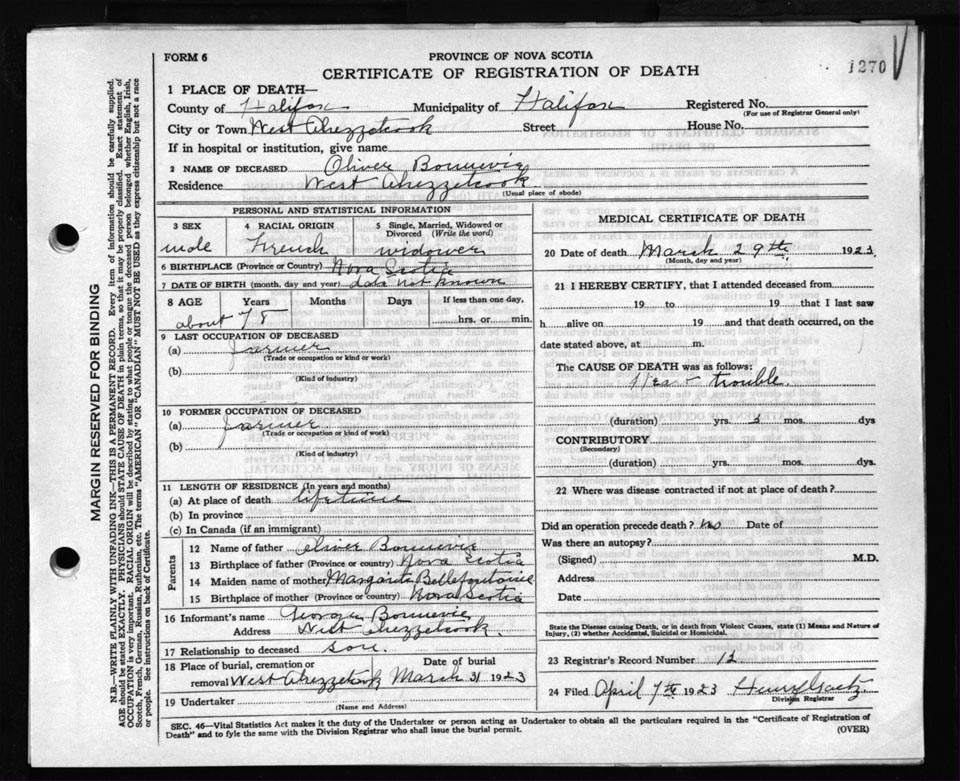 FORM 6
PROVINCE OF NOVA SCOTIA
CERTIFICATE OF REGISTRATION OF DEATH
1270
1 PLACE OF DEATH—
County of Halifax Municipality of Halifax Registered No.
(For use of Registrar General only)
City or Town West Chezzetcook Street House No.
If in hospital or institution, give name
2 NAME OF DECEASED Oliver Bonnevie
Residence West Chezzetcook
(Usual place of abode)
PERSONAL AND STATISTICAL INFORMATION
3 SEX 4 RACIAL ORIGIN 5 Single, Married, Widowed or Divorced (Write the word)
male French widower
6 BIRTHPLACE (Province or Country) Nova Scotia
7 DATE OF BIRTH (month, day and year) date not known
8 AGE Years Months Days If less than one day,
about 78 hrs. or min.
9 LAST OCCUPATION OF DECEASED
(a) farmer
(Trade or occupation or kind of work)
(b)
(Kind of industry)
10 FORMER OCCUPATION OF DECEASED
(a) farmer
(Trade or occupation or kind of work)
(b)
(Kind of industry)
11 LENGTH OF RESIDENCE (In years and months)
(a) At place of death lifetime
(b) In province
(c) In Canada (if an immigrant)
Parents
12 Name of father Oliver Bonnevie
13 Birthplace of father (Province or Country) Nova Scotia
14 Maiden name of mother Margarite Bellefontaine
15 Birthplace of mother (Province or country) Nova Scotia
16 Informant's name George Bonnevie
Address West Chezzetcook
17 Relationship to deceased son.
18 Place of burial, cremation or Date of burial
removal West Chezzetcook March 31 1923
19 Undertaker
(Name and Address)
MEDICAL CERTIFICATE OF DEATH
20 Date of death March 29th, 1923
(Month, day and year)
21 I HEREBY CERTIFY, that I attended deceased from
19 to 19 that I last saw
h alive on 19 and that death occurred, on
date stated above, at m.
The CAUSE OF DEATH was as follows:
Heart trouble.
(duration) yrs. 3 mos. dys
CONTRIBUTORY
(Secondary)
(duration) yrs. mos. dys.
22 Where was disease contracted if not at place of death?
Did an operation precede death? no Date of
Was there an autopsy?
(Signed) M.D.
Address
Date
State the Disease causing Death, or in death from Violent Causes, state (1) Means and Nature of
Injury, (2) whether Accidental, Suicidal or Homicidal.
23 Registrar's Record Number 12
24 Filed April 7th 1923
Division Registrar
SEC. 46—Vital Statistics Act makes it the duty of the Undertaker or person acting as Undertaker to obtain all the particulars required in the "Certificate of Registration of
Death" and to fyle the same with the Division Registrar who shall issue the burial permit.
(OVER)
MARGIN RESERVED FOR BINDING
N.B.—WRITE PLAINLY WITH UNFADING INK—THIS IS A PERMANENT RECORD. Every item of information should be carefully supplied.
AGE should be stated EXACTLY. PHYSICIANS should STATE CAUSE OF DEATH in plain terms, so that it may be properly classified. Exact statement of
OCCUPATION is very important. RACIAL ORIGIN will be described by stating to what people or tongue the deceased person belonged whether English, Irish,
Scotch, French, German, Russian, Ruthenian, etc. The terms "AMERICAN" OR "CANADIAN" MUST NOT BE USED as they express citizenship but not a race
or people. See instructions on back of Certificate.